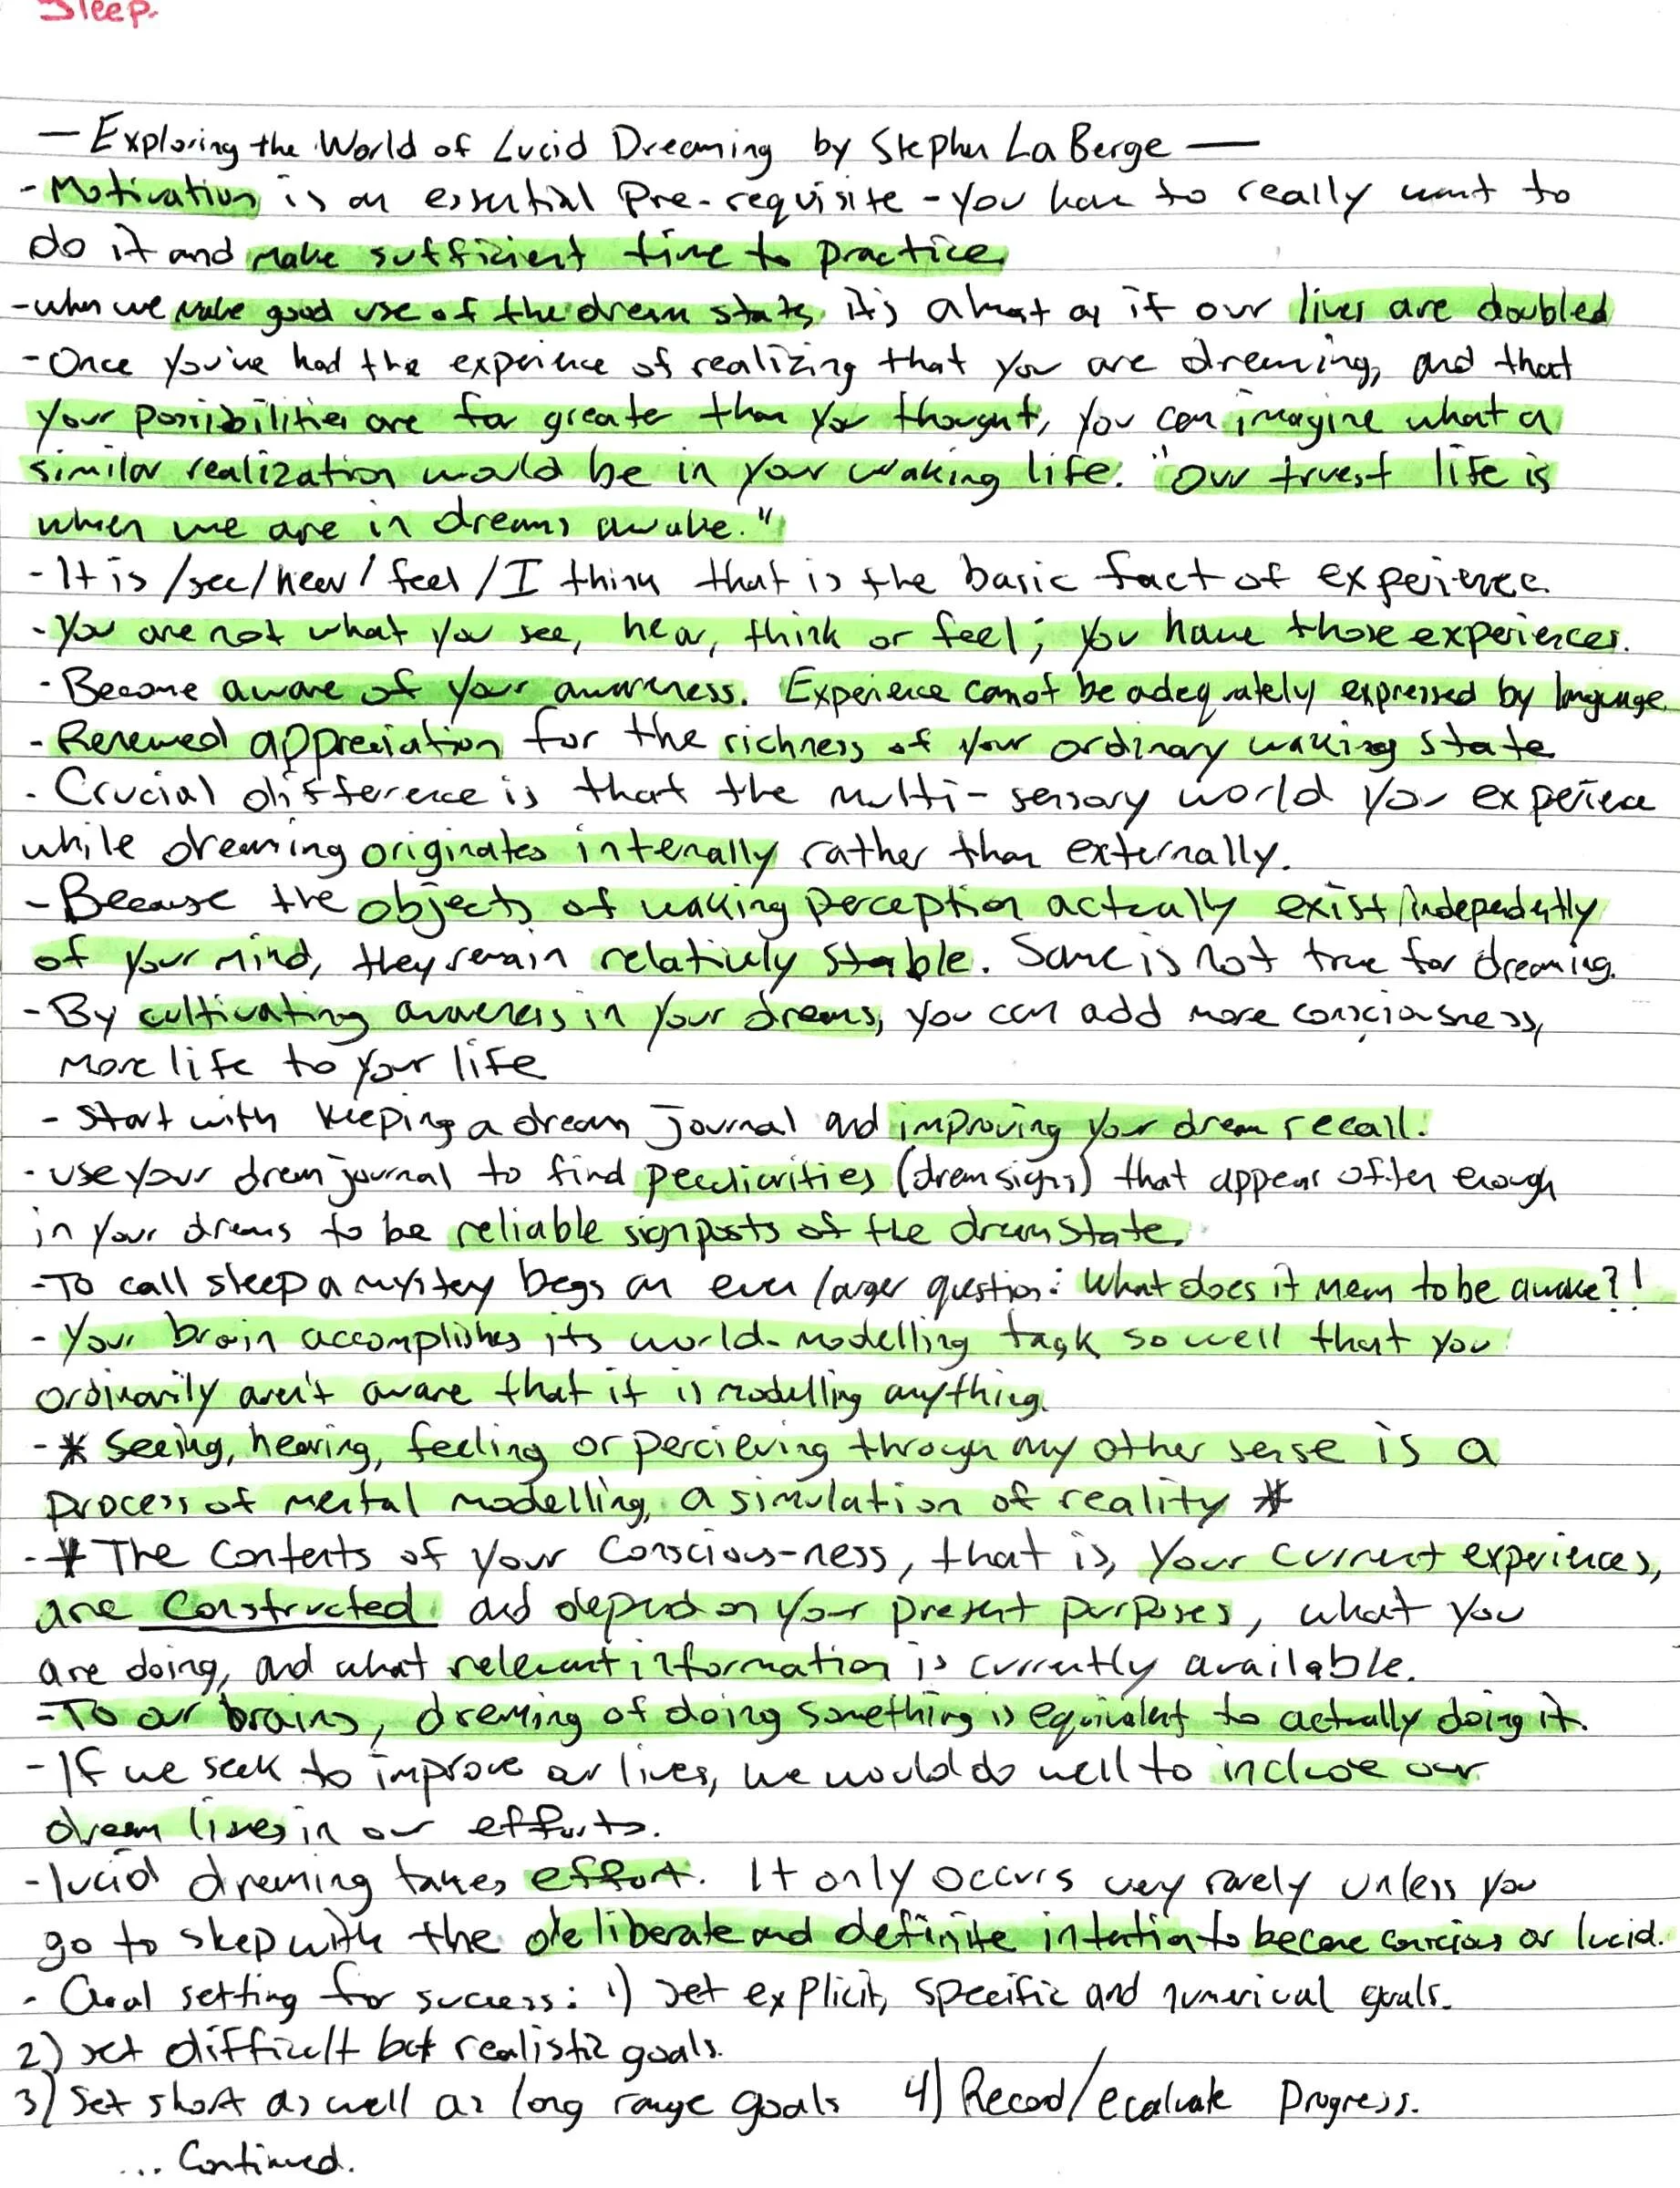 Sleep.
— Exploring the World of Lucid Dreaming by Stephen LaBerge —
- Motivation is an essential Pre-requisite - you have to really want to
do it and make sufficient time to practice.
- when we make good use of the dream state, it's almost as if our lives are doubled
- Once you've had the experience of realizing that you are dreaming, and that
your possibilities are far greater than you thought, you can imagine what a
similar realization would be in your waking life. "Our truest life is
when we are in dreams awake."
- It is /see/hear/feel/I think that is the basic fact of experience.
- You are not what you see, hear, think or feel; you have those experiences.
- Become aware of your awareness. Experience cannot be adequately expressed by language.
- Renewed appreciation for the richness of your ordinary waking state
- Crucial difference is that the multi-sensory world you experience
while dreaming originates internally rather than externally.
- Because the objects of waking perception actually exist independently
of your mind, they remain relatively stable. Same is not true for dreaming.
- By cultivating awareness in your dreams, you can add more consciousness,
more life to your life
- Start with keeping a dream journal and improving your dream recall.
- use your dream journal to find peculiarities (dream signs) that appear often enough
in your dreams to be reliable signposts of the dream state.
- To call sleep a mystery begs an even larger question: What does it mean to be awake?!
- Your brain accomplishes its world-modelling task so well that you
ordinarily aren't aware that it is modelling anything.
- * Seeing, hearing, feeling or percieving through any other sense is a
process of mental modelling, a simulation of reality *
- * The contents of your conscious-ness, that is, your current experiences,
are constructed and depend on your present purposes, what you
are doing, and what relevant information is currently available.
- To our brains, dreaming of doing something is equivalent to actually doing it.
- If we seek to improve our lives, we would do well to include our
dream lives in our efforts.
- lucid dreaming takes effort. It only occurs very rarely unless you
go to sleep with the deliberate and definite intention to become concious or lucid.
- Goal setting for success: 1) set explicit, specific and numerical goals.
2) set difficult but realistic goals.
3) set short as well as long range goals 4) Record/evaluate Progress.
... Continued.